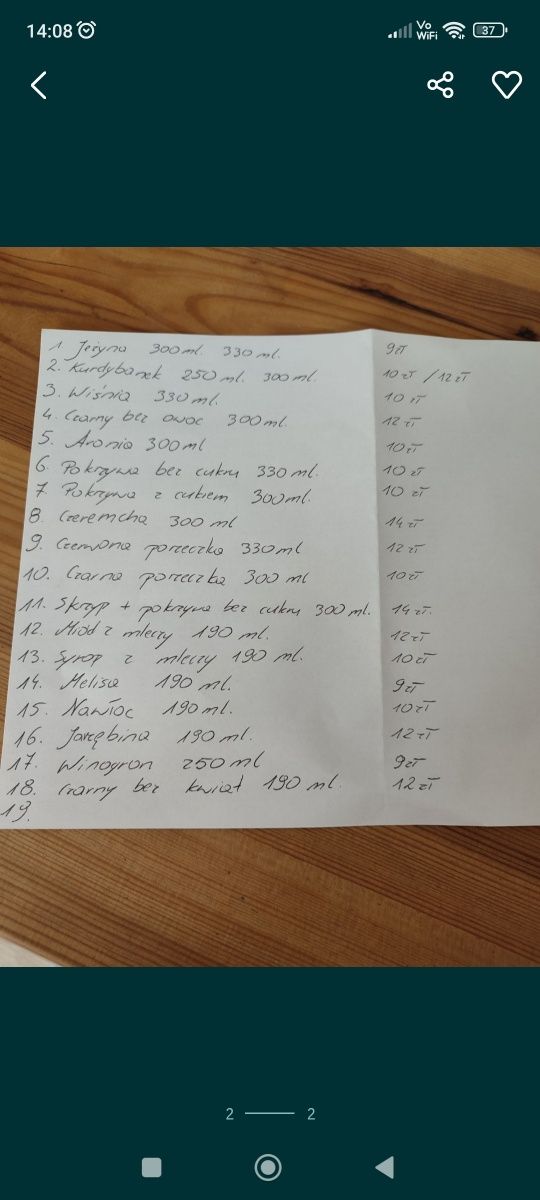 14:08
Vo
WiFi
37
1. Jeżyna 300 ml. 330 ml. 9 zł
2. Kurdybanek 250 ml. 300 ml. 10 zł / 12 zł
3. Wiśnia 330 ml. 10 zł
4. Czarny bez owoc 300 ml. 12 zł
5. Aronia 300 ml 10 zł
6. Pokrzywa bez cukru 330 ml. 10 zł
7. Pokrzywa z cukrem 300 ml. 10 zł
8. Czeremcha 300 ml 14 zł
9. Czerwona porzeczka 330 ml 12 zł
10. Czarna porzeczka 300 ml 10 zł
11. Skrzyp + pokrzywa bez cukru 300 ml. 14 zł.
12. Miód z mleczy 190 ml. 12 zł
13. Syrop z mleczy 190 ml. 10 zł
14. Melisa 190 ml. 9 zł
15. Nawłoc 190 ml. 10 zł
16. Jarzębina 190 ml. 12 zł
17. Winogron 250 ml 9 zł
18. Czarny bez kwiat 190 ml. 12 zł
19.
2 2